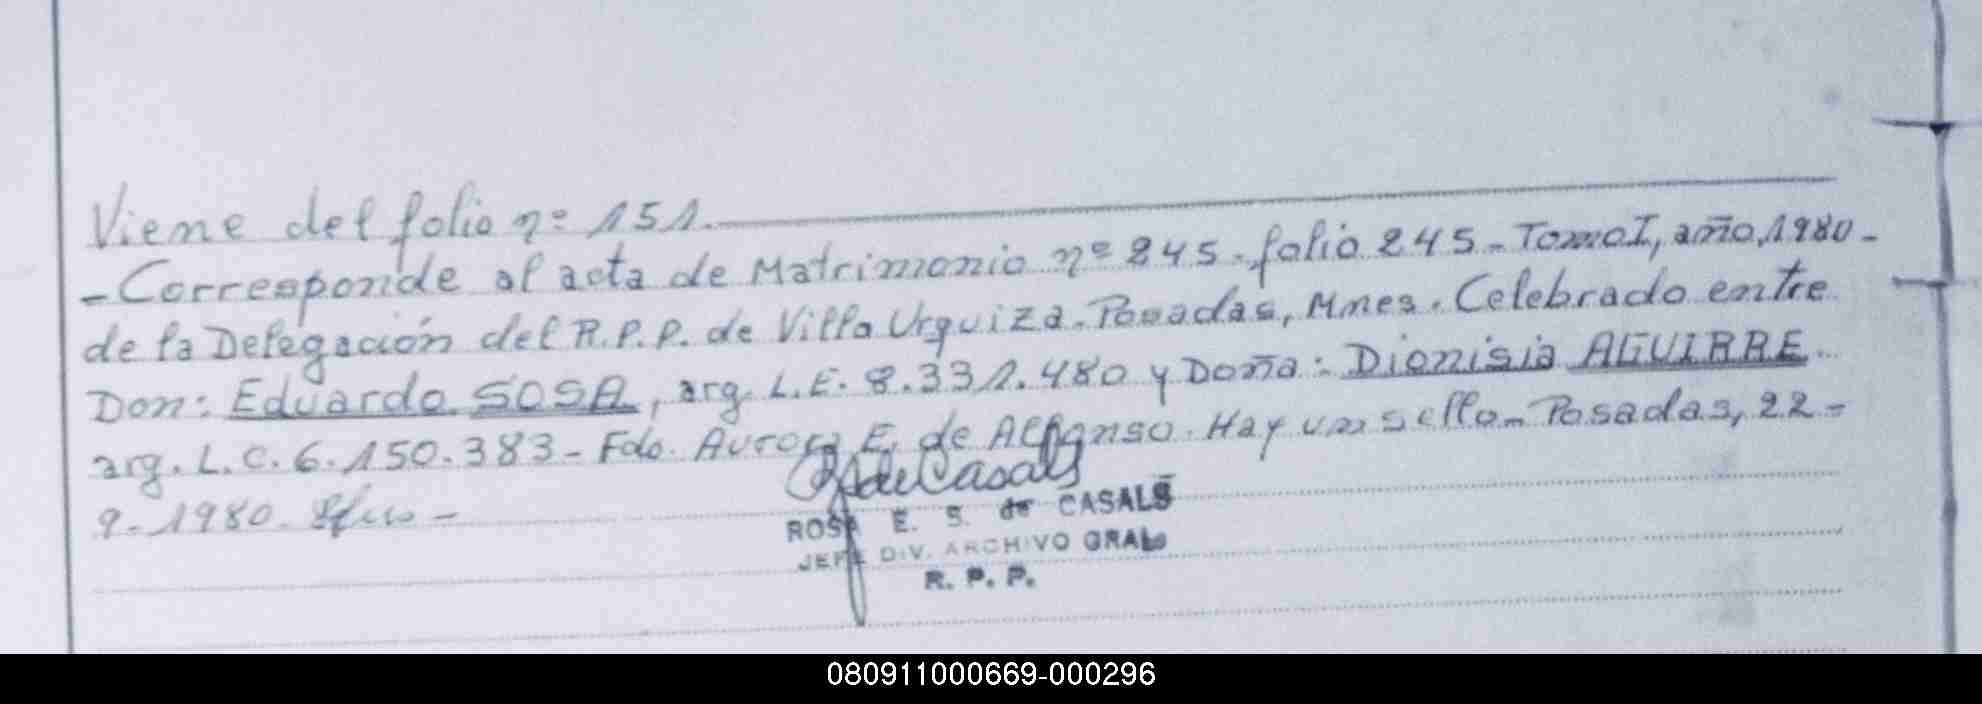 Viene del folio nº 151.
- Corresponde al acta de Matrimonio nº 245. folio 245 - Tomo I, año, 1980 -
de la Delegación del R.P.P. de Villa Urquiza. Posadas, Mnes. Celebrado entre
Don: Eduardo SOSA, arg. L.E. 8.331.480 y Doña: Dionisia AGUIRRE.
arg. L.C. 6.150.383 - Fdo. Aurora E. de Alfonso. Hay un sello. Posadas, 22 -
9 - 1980.
de Casals
ROSA E. S. de CASALS
JEFE DIV. ARCHIVO GRAL.
R. P. P.
080911000669-000296